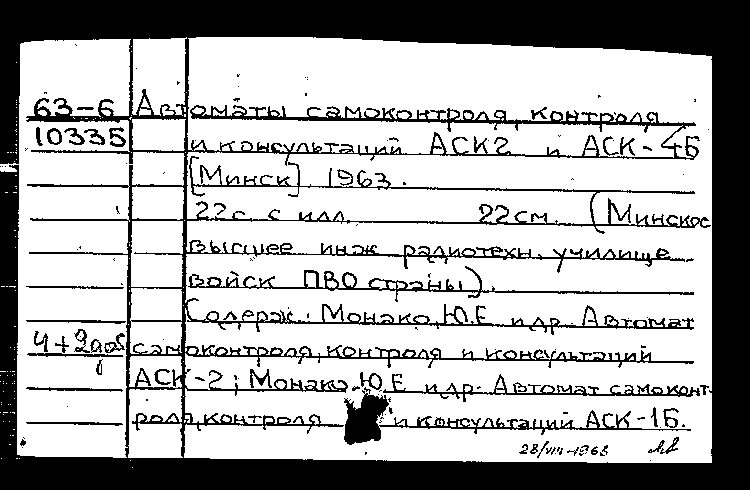 63-6 Автоматы самоконтроля, контроля
10335 и консультаций АСК2 и АСК-4Б
[Минск] 1963.
22с. с илл. 22см. (Минское
высшее инж радиотехн. училище
войск ПВО страны).
Содерж.: Монако, Ю.Е и др. Автомат
4+2доб самоконтроля, контроля и консультаций
АСК-2; Монако Ю.Е и др. Автомат самоконт-
роля, контроля и консультаций АСК-1Б.
28/VIII-1968